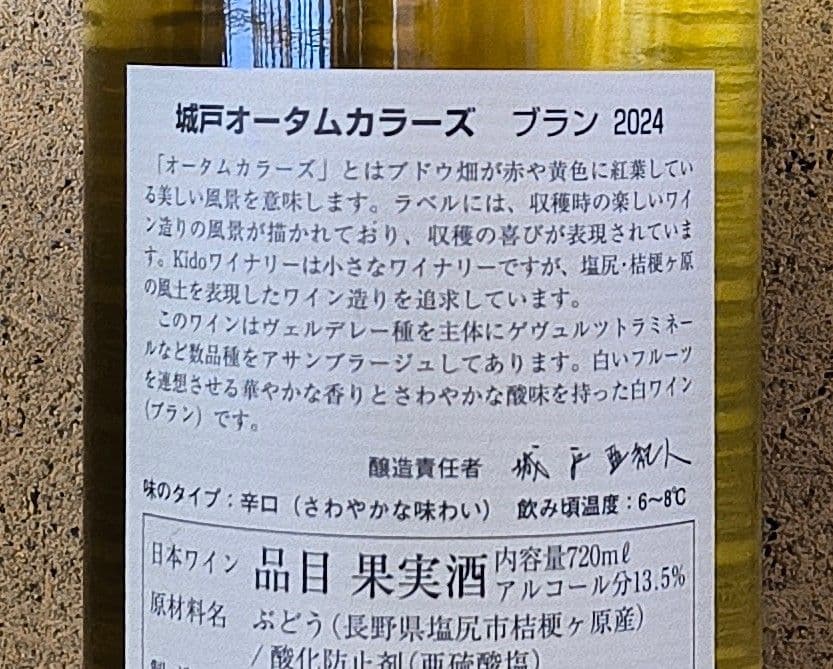 城戸オータムカラーズ ブラン 2024
「オータムカラーズ」とはブドウ畑が赤や黄色に紅葉してい
る美しい風景を意味します。ラベルには、収穫時の楽しいワイ
ン造りの風景が描かれており、収穫の喜びが表現されていま
す。Kidoワイナリーは小さなワイナリーですが、塩尻・桔梗ヶ原
の風土を表現したワイン造りを追求しています。
このワインはヴェルデレー種を主体にゲヴュルツトラミネー
ルなど数品種をアサンブラージュしてあります。白いフルーツ
を連想させる華やかな香りとさわやかな酸味を持った白ワイン
(ブラン)です。
醸造責任者 城戸亜紀人
味のタイプ:辛口(さわやかな味わい) 飲み頃温度:6〜8℃
日本ワイン 品目 果実酒 内容量720mℓ
アルコール分13.5%
原材料名 ぶどう(長野県塩尻市桔梗ヶ原産)
/酸化防止剤(亜硫酸塩)